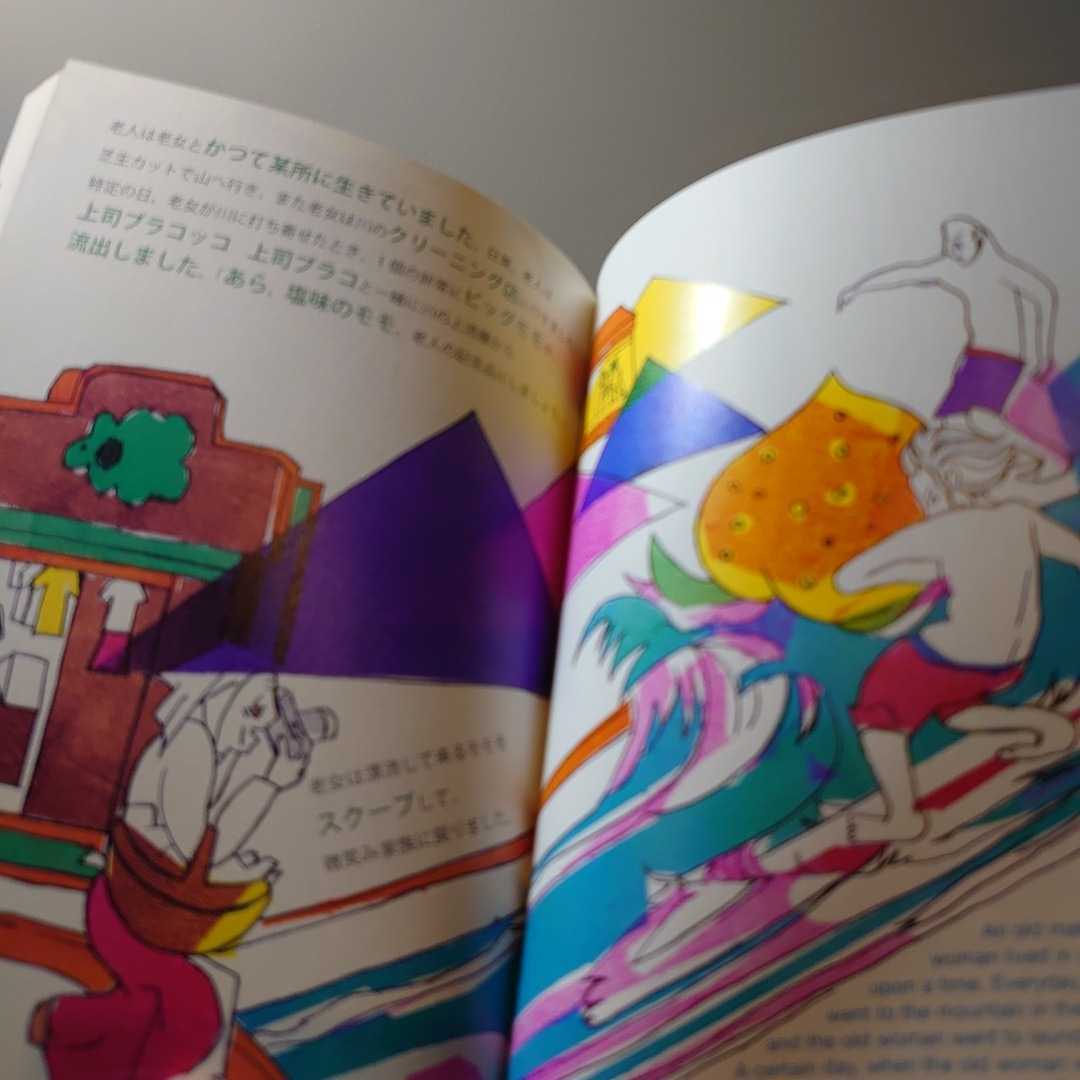 老人は老女とかつて某所に生きていました。日常、老人は
芝生カットで山へ行き、また老女は川のクリーニング店
特定の日、老女が川に打ち寄せたとき、1個の非常にビッグなモモ
上司ブラコッコ 上司ブラコと一緒に川の上流から
流出しました。「あら、塩味のモモ、老人の記念品に
老女は漂流して来るモモを
スクープして、
微笑み家族に戻りました
An old ma
woman lived in
upon a time. Everyday,
went to the mountain in the
and the old woman went to laund
A certain day, when the old woman